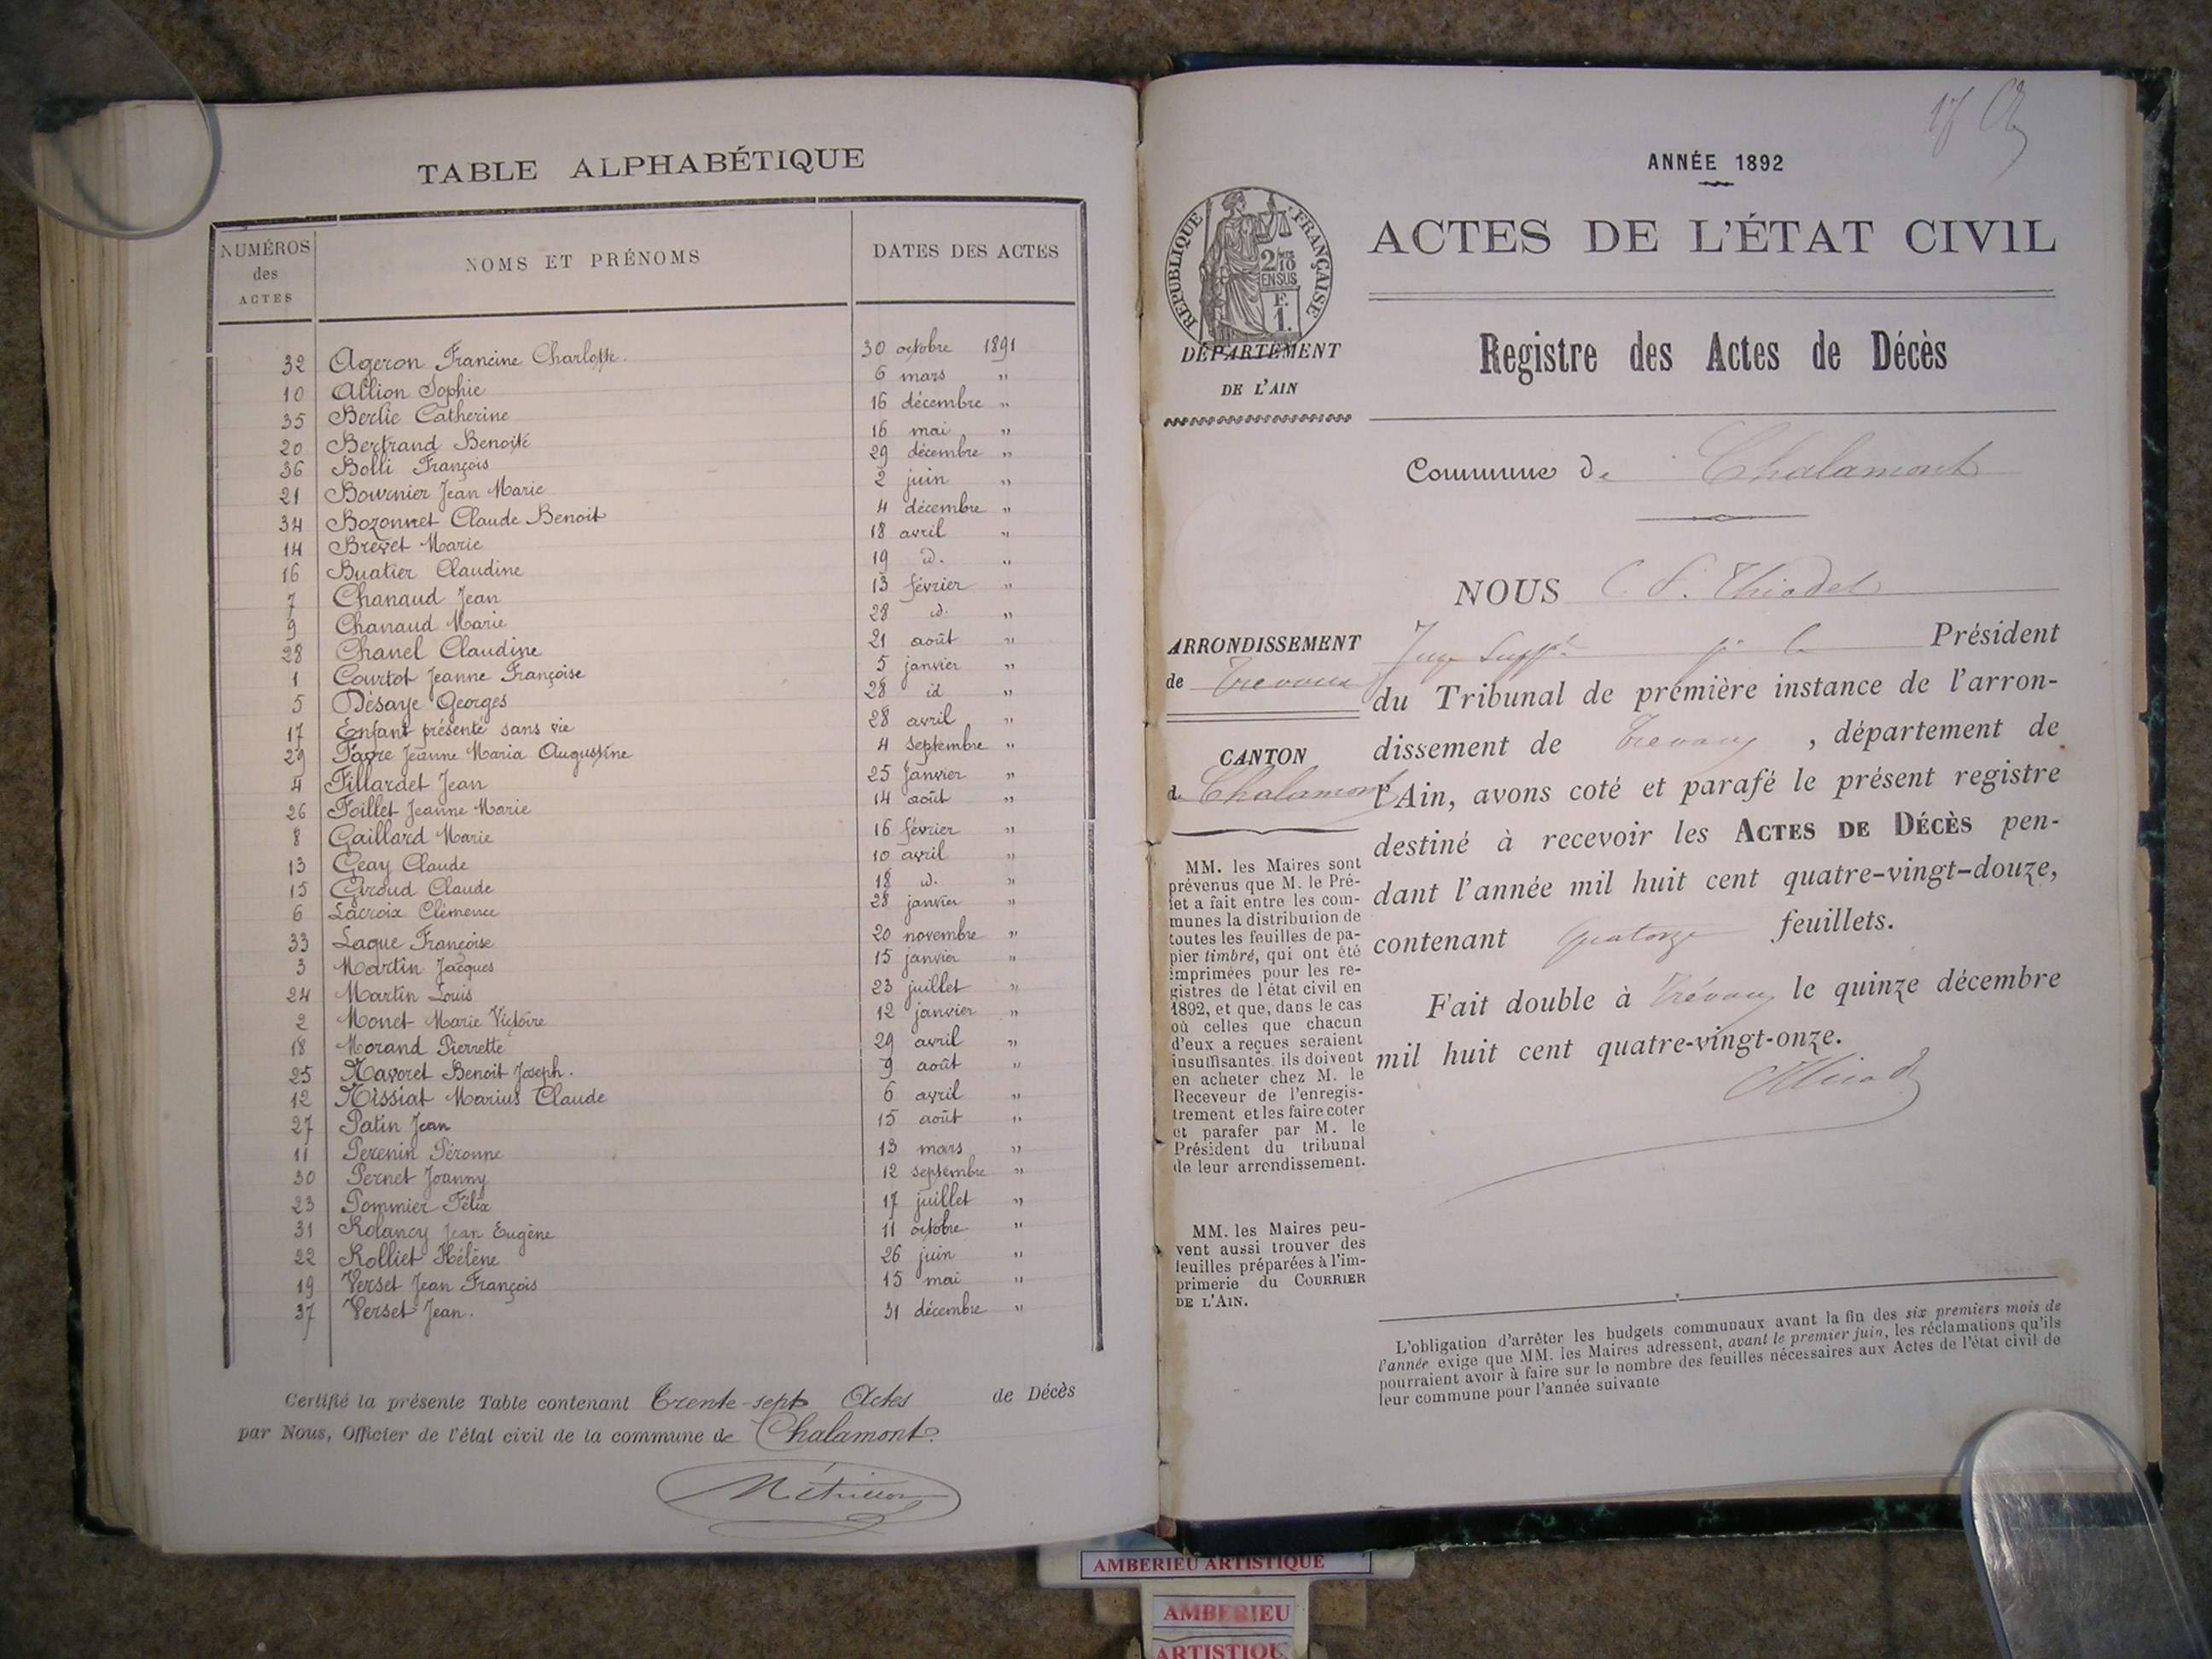 TABLE ALPHABÉTIQUE
NUMÉROS des ACTES NOMS ET PRÉNOMS DATES DES ACTES
32 Ageron Francine Charlotte. 30 octobre 1891
10 Allion Sophie 6 mars "
35 Berlie Catherine 16 décembre "
20 Bertrand Benoite 16 mai "
36 Bolli François 29 décembre "
21 Bournier Jean Marie 2 juin "
34 Bozonnet Claude Benoit 4 décembre "
14 Brevet Marie 18 avril "
16 Buatier Claudine 19 id. "
7 Chanaud Jean 13 février "
9 Chanaud Marie 28 id. "
28 Chanel Claudine 21 août "
1 Courtot Jeanne Françoise 5 janvier "
5 Désaye Georges 28 id "
17 Enfant présenté sans vie 28 avril "
29 Favre Jeanne Maria Augustine 4 septembre "
4 Fillardet Jean 25 janvier "
26 Foillet Jeanne Marie 14 août "
8 Gaillard Marie 16 février "
13 Geay Claude 10 avril "
15 Giroud Claude 18 id. "
6 Lacroix Clémence 28 janvier "
33 Laque Françoise 20 novembre "
3 Martin Jacques 15 janvier "
24 Martin Louis 23 juillet "
2 Monet Marie Victoire 12 janvier "
18 Morand Pierrette 29 avril "
25 Navoret Benoit Joseph. 9 août "
12 Nissiat Marius Claude 6 avril "
27 Patin Jean 15 août "
11 Perenin Péronne 13 mars "
30 Pernet Joanny 12 septembre "
23 Pommier Félix 17 juillet "
31 Rolancy Jean Eugène 11 octobre "
22 Rolliet Hélène 26 juin "
19 Verset Jean François 15 mai "
37 Verset Jean. 31 décembre "
Certifié la présente Table contenant Trente-sept Actes de Décès
par Nous, Officier de l'état civil de la commune de Chalamont.
ANNÉE 1892
ACTES DE L'ÉTAT CIVIL
RÉPUBLIQUE FRANÇAISE
2/10 EN SUS
F. 1.
DÉPARTEMENT
DE L'AIN
Registre des Actes de Décès
Commune de Chalamont
ARRONDISSEMENT
de Trevoux
CANTON
de Chalamont
MM. les Maires sont
prévenus que M. le Pré-
fet a fait entre les com-
munes la distribution de
toutes les feuilles de pa-
pier timbré, qui ont été
imprimées pour les re-
gistres de l'état civil en
1892, et que, dans le cas
où celles que chacun
d'eux a reçues seraient
insuffisantes, ils doivent
en acheter chez M. le
Receveur de l'enregis-
trement et les faire coter
et parafer par M. le
Président du tribunal
de leur arrondissement.
MM. les Maires peu-
vent aussi trouver des
feuilles préparées à l'im-
primerie du COURRIER
DE L'AIN.
NOUS C. F. Thiodet
Juge Supp.t p. le Président
du Tribunal de première instance de l'arron-
dissement de Trevoux, département de
l'Ain, avons coté et parafé le présent registre
destiné à recevoir les ACTES DE DÉCÈS pen-
dant l'année mil huit cent quatre-vingt-douze,
contenant quatorze feuillets.
Fait double à Trévoux le quinze décembre
mil huit cent quatre-vingt-onze.
L'obligation d'arrêter les budgets communaux avant la fin des six premiers mois de
l'année exige que MM. les Maires adressent, avant le premier juin, les réclamations qu'ils
pourraient avoir à faire sur le nombre des feuilles nécessaires aux Actes de l'état civil de
leur commune pour l'année suivante
AMBERIEU ARTISTIQUE
AMBERIEU
ARTISTIQUE